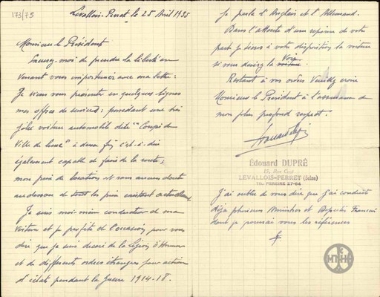 193/73
Levallois-Perret le 25 Avril 1935
Monsieur le Président
Excusez-moi de prendre la liberté en
venant vous importuner avec ma lettre.
Je viens vous présenter en quelques lignes
mes offres de service: possédant une très
jolie voiture automobile dite "Coupé de
Ville de luxe" à deux fins c'est à dire
également capable de faire de la route,
mon prix de location est sans aucun doute
au-dessous de tous les prix existant actuellement
Je suis moi-même conducteur de ma
voiture et je profite de l'occasion pour vous
dire que je suis décoré de la Légion d'Honneur
et de différents ordres étrangers pour actions
d'éclat pendant la Guerre 1914-18.
Je parle l'Anglais et l'Allemand.
Dans l'attente d'une réponse de votre
part je tiens à votre disposition la voiture
si vous désirez la voir
Restant à vos ordres Veuillez croire
Monsieur le Président à l'assurance de
mon plus profond respect.
Edouard DUPRÉ
LEVALLOIS-PERRET (Seine)
J'ai oublié de vous dire que j'ai conduit
déjà plusieurs Ministres et Députés Français
dont je pourrais vous les références